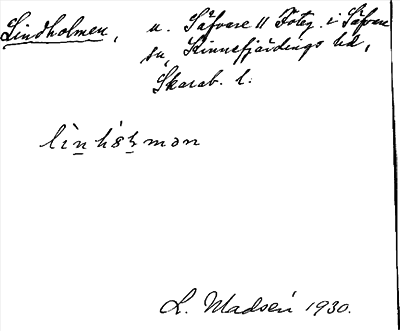 Lindholmen, u. Säfvare 11 Foteg. i Säfvare
sn, Kinnefjärdings hd,
Skarab. l.
lìn hó̀lmən
L. Madsén 1930.